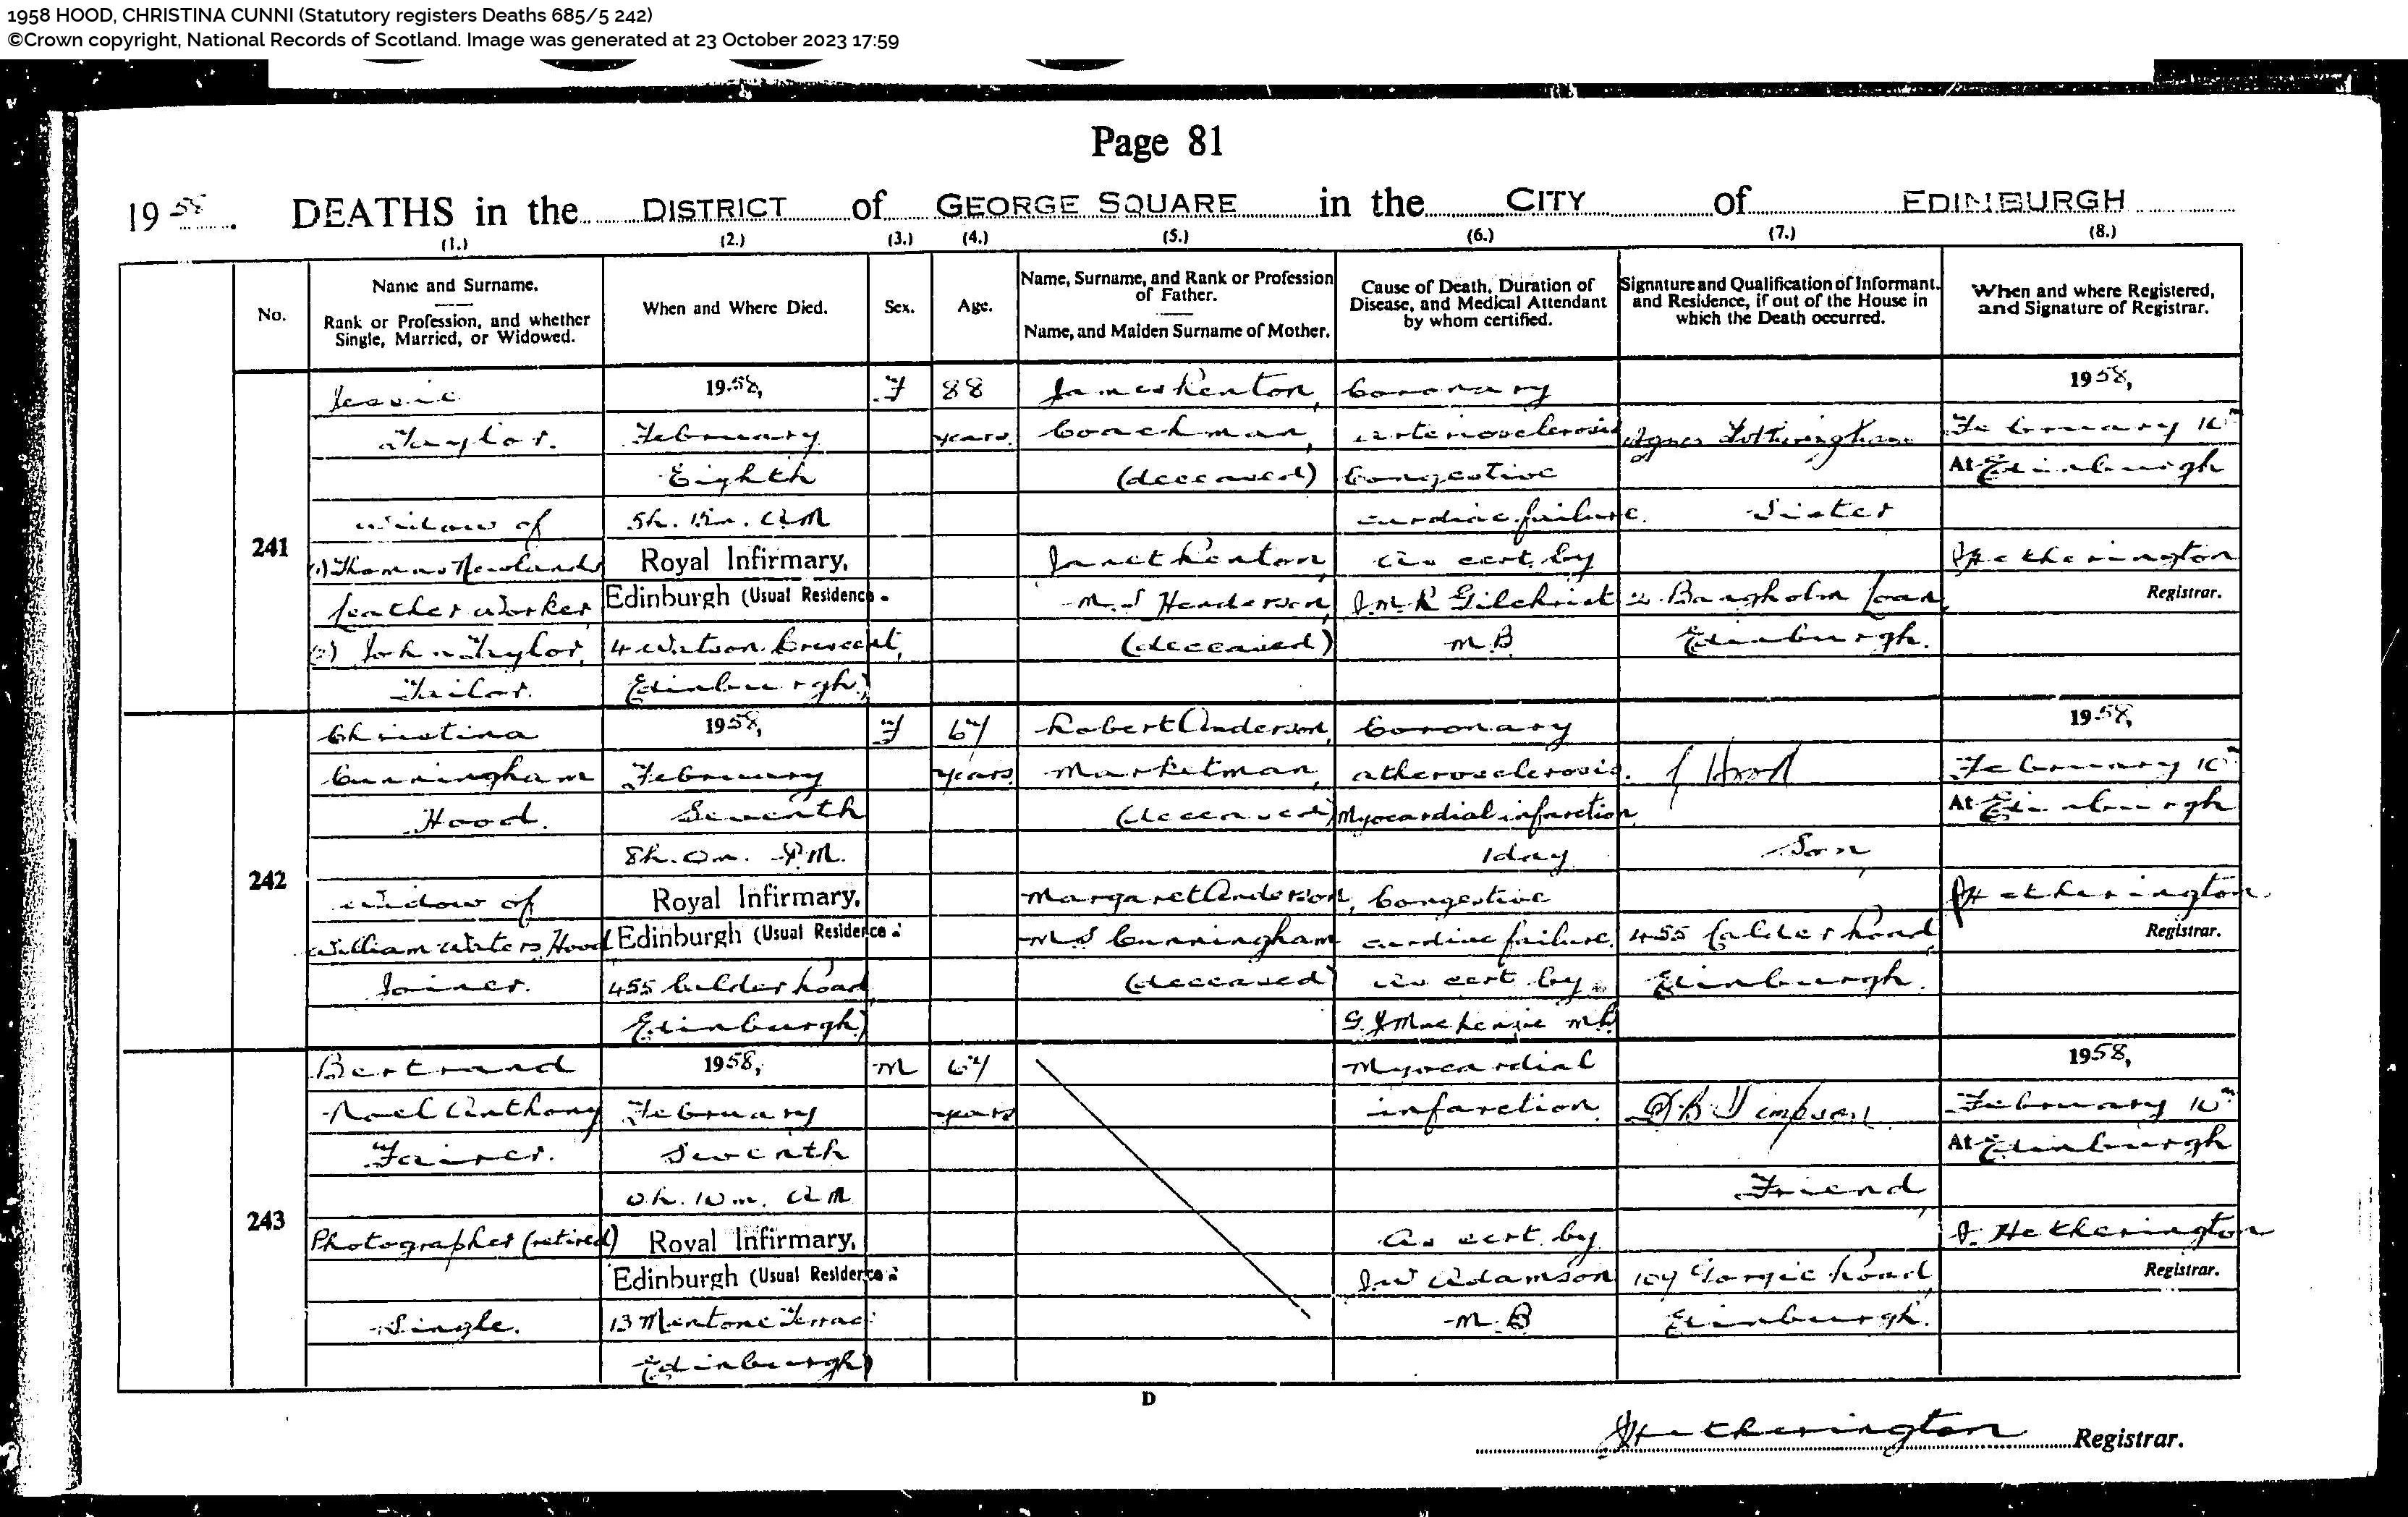 1958 HOOD, CHRISTINA CUNNI (Statutory registers Deaths 685/5 242)
©Crown copyright, National Records of Scotland. Image was generated at 23 October 2023 17:59
Page 81
1958. DEATHS in the DISTRICT of GEORGE SQUARE in the CITY of EDINBURGH
(1.) (2.) (3.) (4.) (5.) (6.) (7.) (8.)
No.
Name and Surname.
Rank or Profession, and whether
Single, Married, or Widowed.
When and Where Died.
Sex.
Age.
Name, Surname, and Rank or Profession
of Father.
Name, and Maiden Surname of Mother.
Cause of Death, Duration of
Disease, and Medical Attendant
by whom certified.
Signature and Qualification of Informant,
and Residence, if out of the House in
which the Death occurred.
When and where Registered,
and Signature of Registrar.
241
Jessie
Taylor.
widow of
(1) Thomas Newlands
leather worker,
(2) John Taylor,
Tailor.
1958,
February
Eighth
5h. 15m. AM
Royal Infirmary,
Edinburgh (Usual Residence.
4 Watson Crescent,
Edinburgh)
F
88
years.
James Renton,
Coachman,
(deceased)
Janet Renton,
M.S Henderson,
(deceased)
Coronary
arteriosclerosis
Congestive
cardiac failure.
as cert. by
J.M.R Gilchrist
M.B.
Agnes Fotheringham
Sister
2 Bangholm Loan,
Edinburgh.
1958,
February 10th
At Edinburgh
J Hetherington
Registrar.
242
Christina
Cunningham
Hood.
widow of
William Waters Hood,
Joiner.
1958,
February
Seventh
8h. 0m. P.M.
Royal Infirmary,
Edinburgh (Usual Residence:
455 Calder Road,
Edinburgh)
F
67
years.
Robert Anderson,
Marketman,
(deceased)
Margaret Anderson,
M.S Cunningham
(deceased)
Coronary
atherosclerosis.
Myocardial infarction,
1 day
Congestive
cardiac failure.
as cert. by
G.J Mackenzie M.B.
Hood
Son,
455 Calder Road,
Edinburgh.
1958,
February 10th
At Edinburgh
J Hetherington
Registrar.
243
Bertrand
Noel Anthony
Fairer.
Photographer (retired)
Single.
1958,
February
Seventh
0h. 10m. AM
Royal Infirmary,
Edinburgh (Usual Residence:
13 Mentone Terrace
Edinburgh)
M
67
years
Myocardial
infarction.
As cert. by
J.W Adamson
M.B
D.B. Simpson
Friend,
107 Gorgie Road,
Edinburgh.
1958,
February 10th
At Edinburgh
J. Hetherington
Registrar.
D
J Hetherington Registrar.